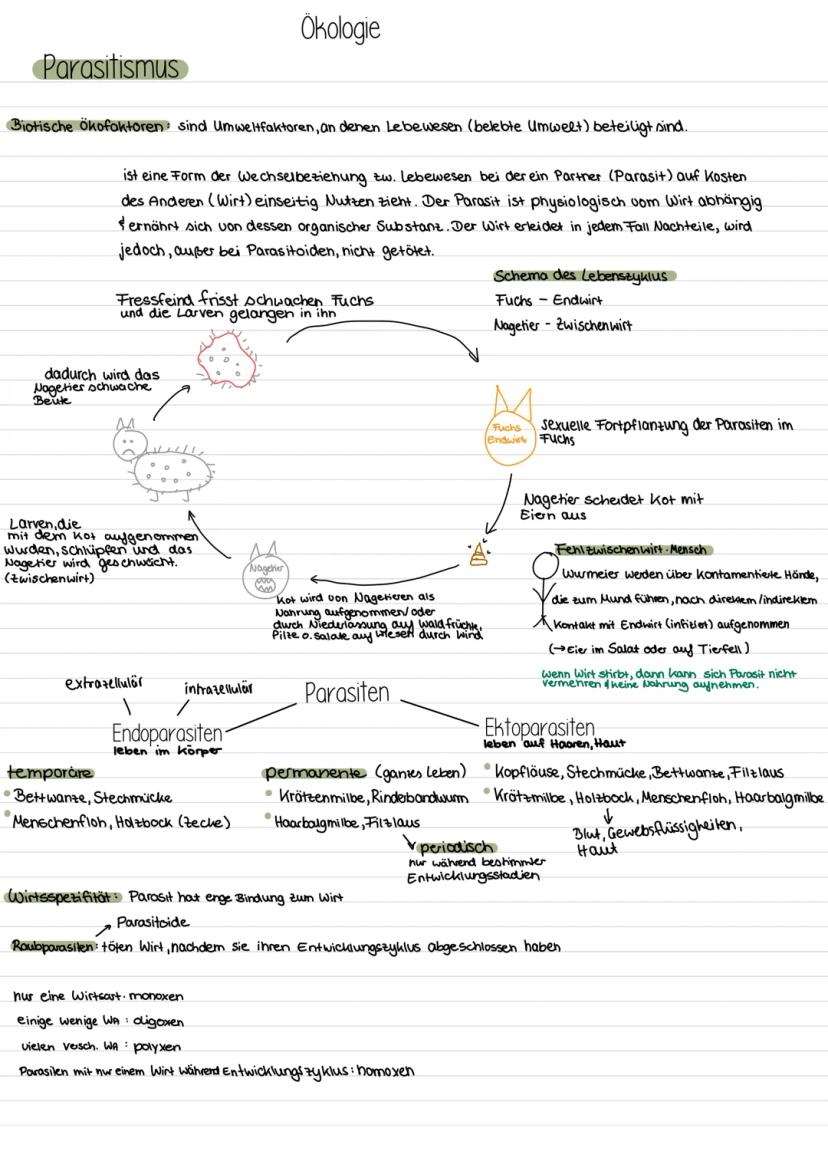 Ökologie
Parasitismus
Biotische Ökofaktoren: sind Umweltfaktoren, an denen Lebewesen (belebte Umwelt) beteiligt sind.
ist eine Form der Wechselbeziehung zw. Lebewesen bei der ein Partner (Parasit) auf Kosten
des Anderen (Wirt) einseitig Nutzen zieht. Der Parasit ist physiologisch vom Wirt abhängig
& ernährt sich von dessen organischer Substanz. Der Wirt erleidet in jedem Fall Nachteile, wird
jedoch, außer bei Parasitoiden, nicht getötet.
Schema des Lebenszyklus
Fuchs - Endwirt
Nagetier - Zwischenwirt
Fressfeind frisst schwachen Fuchs
und die Larven gelangen in ihn
dadurch wird das
Nagetier schwache
Beute
Fuchs
Endwirt
sexuelle Fortpflanzung der Parasiten im
Fuchs
Nagetier scheidet Kot mit
Eiern aus
Larven, die
mit dem Kot aufgenommen
wurden, schlüpfen und das
Nagetier wird geschwächt.
(Zwischenwirt)
Nagetier
Kot wird von Nagetieren als
Nahrung aufgenommen/oder
durch Niederlassung auf Waldfrüchte,
Pilze o. Salate auf Wiesen durch Wind
Fehlzwischenwirt · Mensch
Wurmeier werden über kontamentierte Hände,
die zum Mund führen, nach direktem/indirektem
Kontakt mit Endwirt (infiziert) aufgenommen
(→ Eier im Salat oder auf Tierfell)
wenn Wirt stirbt, dann kann sich Parasit nicht
vermehren & keine Nahrung aufnehmen.
Parasiten
extrazellulär
intrazellulär
Endoparasiten
leben im Körper
Ektoparasiten
leben auf Haaren, Haut
temporäre
• Bettwanze, Stechmücke
• Menschenfloh, Holzbock (Zecke)
permanente (ganzes Leben)
• Krötzenmilbe, Rinderbandwurm
• Haarbalgmilbe, Filzlaus
periodisch
nur während bestimmter
Entwicklungsstadien
• Kopfläuse, Stechmücke, Bettwanze, Filzlaus
• Krätzmilbe, Holzbock, Menschenfloh, Haarbalgmilbe
Blut, Gewebsflüssigkeiten,
Haut
Wirtsspezifität: Parasit hat enge Bindung zum Wirt
Parasitoide
Raubparasiten: töten Wirt, nachdem sie ihren Entwicklungszyklus abgeschlossen haben
nur eine Wirtsart · monoxen
einige wenige WA : oligoxen
vielen versch. WA : polyxen
Parasiten mit nur einem Wirt während Entwicklungszyklus : homoxen